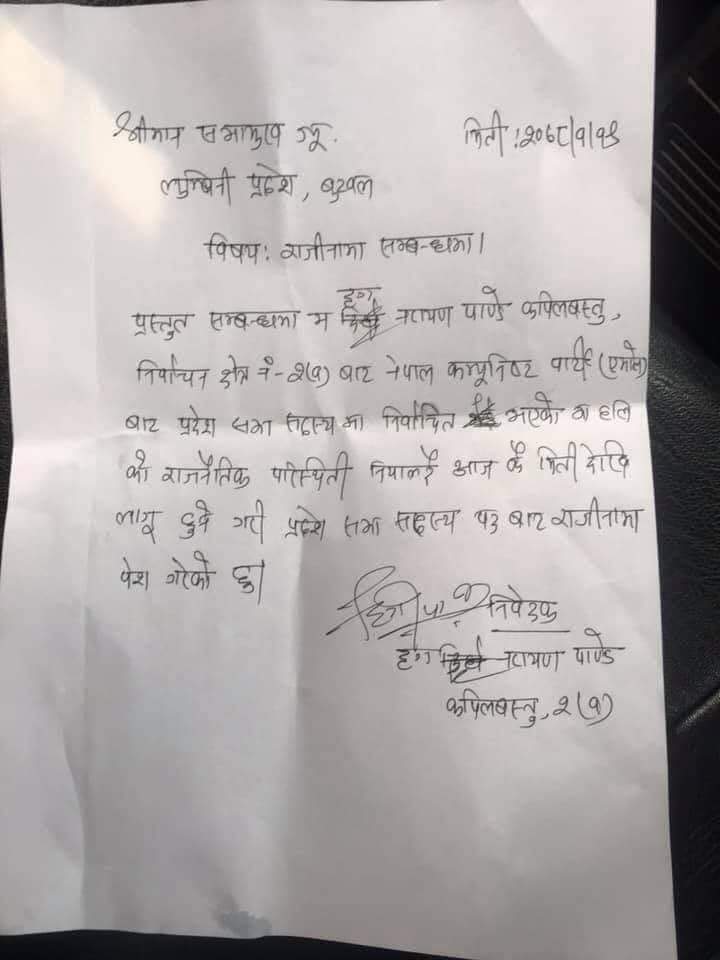 श्रीमान सभामुख ज्यू. मिती:२०७८/१/१९
लुम्बिनी प्रदेश, बुटवल
विषय: राजीनामा सम्बन्धमा।
प्रस्तुत सम्बन्धमा म दृग नारायण पाण्डे कपिलबस्तु,
निर्वाचन क्षेत्र नं-२(१) बाट नेपाल कम्यूनिष्ट पार्टी (एमाले)
बाट प्रदेश सभा सदस्य मा निर्वाचित भएको मा हाल
को राजनैतिक परिस्थिती निपालदै आज कै मिती देखि
लागू हुने गरी प्रदेश सभा सदस्य पद बाट राजीनामा
पेश गरेको छु।
निवेदक
दृग नारायण पाण्डे
कपिलबस्तु, २(१)